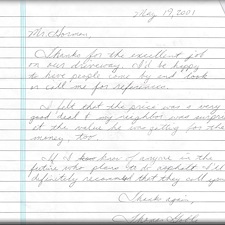 May 19, 2001
Mr. Horman,
Thanks for the excellent job
on our driveway. I'd be happy
to have people come by and look
or call me for references.
I felt that the price was a very
good deal & my neighbor was surprised
at the value he was getting for the
money, too.
If I know of anyone in the
future who plans to do asphalt I'll
definitely recommend that they call you.
Thanks again,